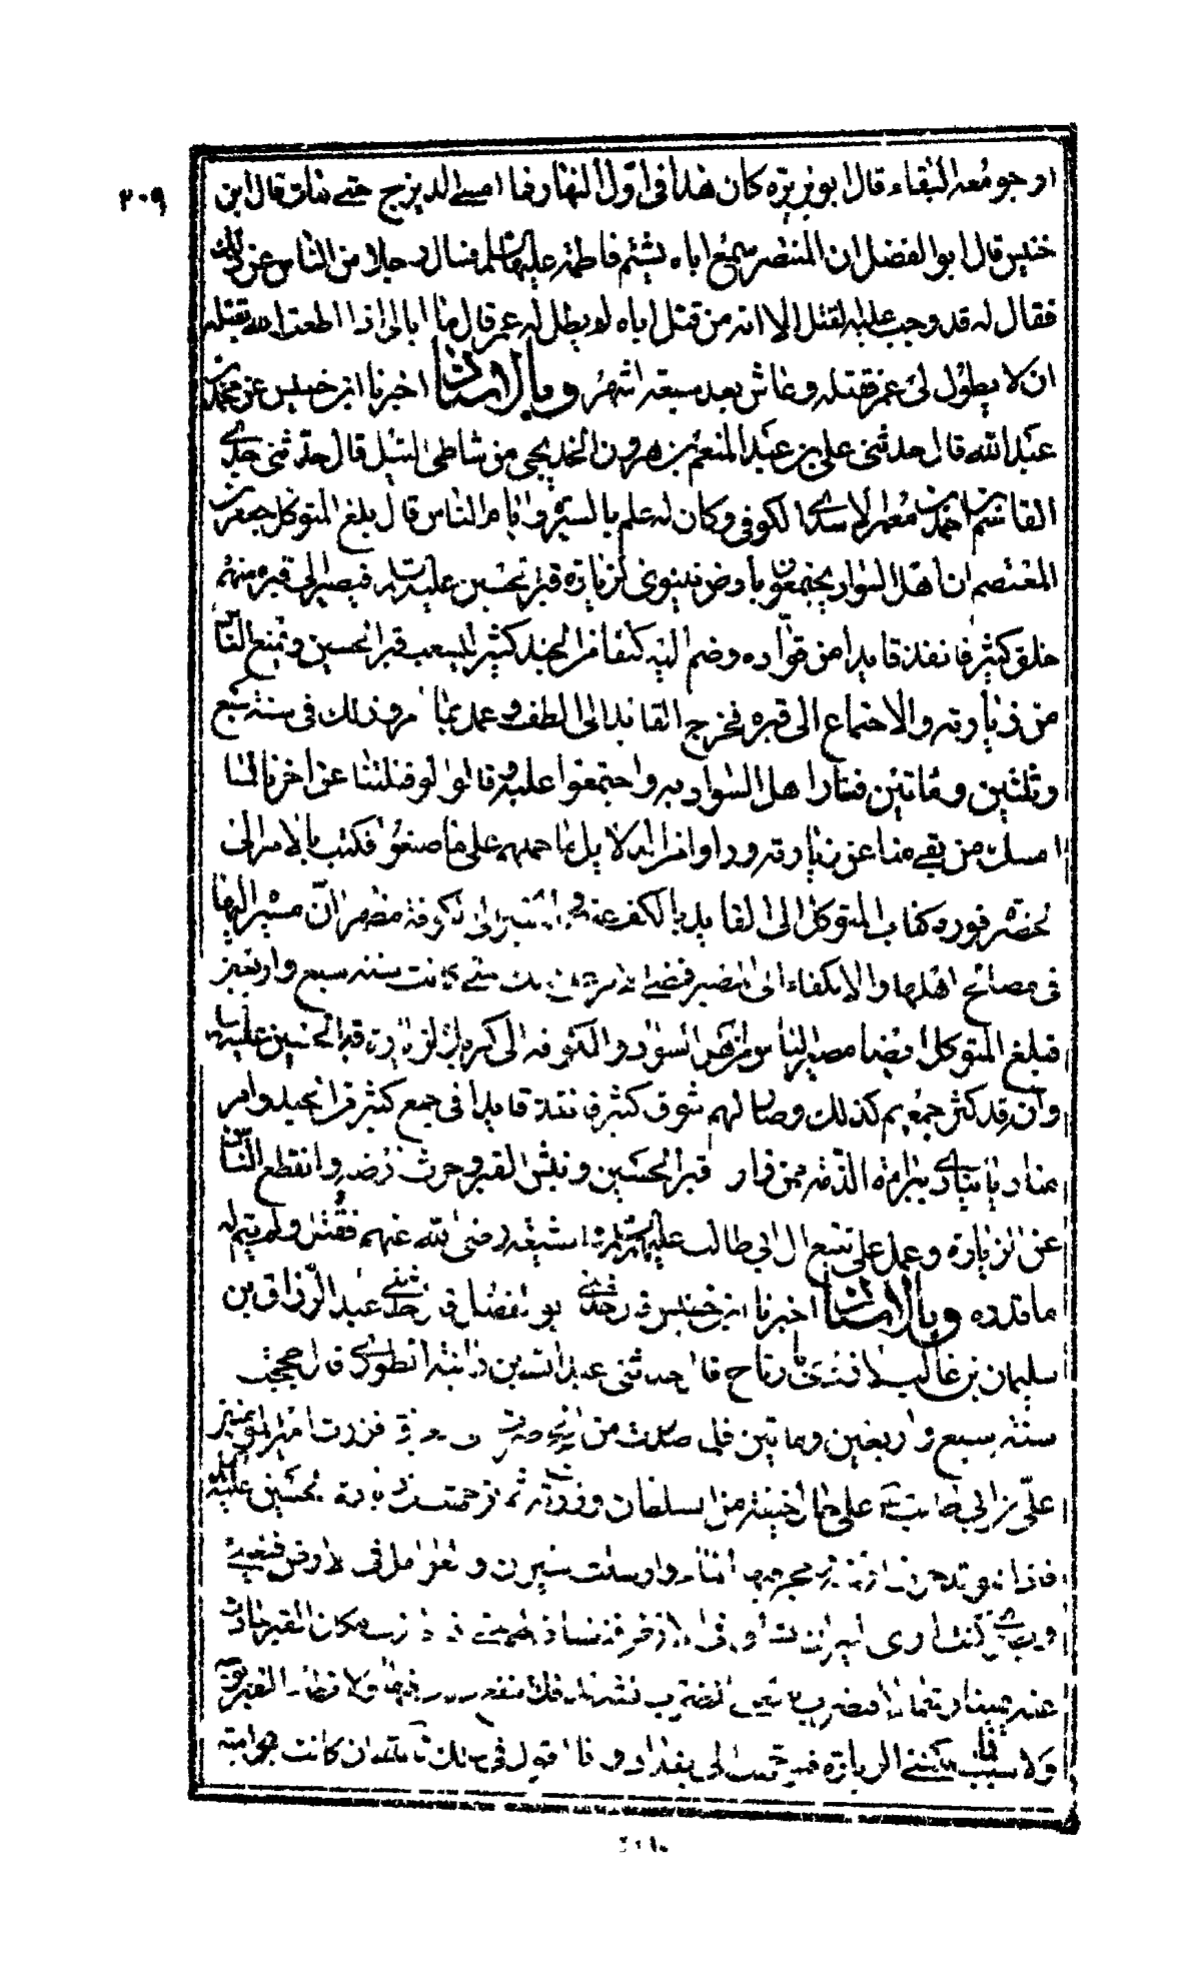 ٢٠٩
ارجو معه البقاء قال ابو بريره كان هذا في اول النهار فما امسى الديزج حتى مات قال ابن
خنيس قال ابو الفضل ان المنتصر سمع اباه يشتم فاطمة عليها السلم فسال رجلا من الناس عن ذلك
فقال له قد وجب عليه القتل الا انه من قتل اباه لم يطل له عمر قال ما ابالي اذا اطعت الله بقتله
ان لا يطول لي عمر فقتله وعاش بعده سبعة اشهر وبالاسناد اخبرنا ابن خنيس عن محمد بن
عبد الله قال حدثني علي بن عبد المنعم بن هرون الخديجي من شاطئ النيل قال حدثني جدي
القاسم بن احمد بن معمر الاسدي الكوفي وكان له علم بالسيرة وايام الناس قال بلغ المتوكل جعفر بن
المعتصم ان اهل السواد يجتمعون بارض نينوى لزيارة قبر الحسين عليه السلم فيصير الى قبره منهم
خلق كثير فانفذ قايدا من قواده وضم اليه كنفا من الجند كثيرا ليشعب قبر الحسين ويمنع الناس
من زيارته والاجتماع الى قبره فخرج القايد الى الطف وعمل بما امر وذلك في سنة سبع
وثلثين وماتين فثار اهل السواد به واجتمعوا عليه وقالوا لو قتلتنا عن اخرنا لما
امسك من بقي منا عن زيارته وراوا من الدلايل ما حملهم على ما صنعوا فكتب بالامر الى
الحضرة فورد كتاب المتوكل الى القايد بالكف عنهم والمسير الى الكوفة مظهرا ان مسيره اليها
في مصالح اهلها والانكفاء الى المصر فمضى الامر على ذلك حتى كانت سنة سبع واربعين
فبلغ المتوكل ايضا مصير الناس من اهل السواد والكوفه الى كربلا لزيارة قبر الحسين عليه السلم
وانه قد كثر جمعهم كذلك وصار لهم سوق كثير فانفذ قايدا في جمع كثير من الجند وامر
مناديا ينادي ببراءة الذمة ممن زار قبر الحسين ونبش القبر وحرث ارضه وانقطع الناس
عن الزيارة وعمل على تتبع ال ابي طالب عليهم السلم والشيعة رضي الله عنهم فقتل ولم يتم له
ما قدره وبالاسناد اخبرنا ابن خنيس قال حدثني ابو الفضل قال حدثني عبد الرزاق بن
سليمان بن غالب الازدي بارتاح قال حدثني عبد الله بن دانية الطوري قال حججت
سنة سبع واربعين وماتين فلما صدرت من الحج صرت الى العراق فزرت امير المؤمنين
علي بن ابي طالب على حال خيفة من السلطان وزرته ثم توجهت الى زيارة الحسين عليه السلم
فاذا هو قد حرث ارضه ومخر فيها الماء وارسلت الثيران والعوامل في الارض فبعيني
وبصري كنت ارى الثيران تساق في الارض فتنساق لهم حتى اذا حاذت مكان القبر حادت
عنه يمينا وشمالا فتضرب بالعصي الضرب الشديد فلا ينفع ذلك فيها ولا تطا القبر بوجه
ولا سبب فما امكنني الزيارة فتوجهت الى بغداد وانا اقول في ذلك تالله ان كانت بنو امية